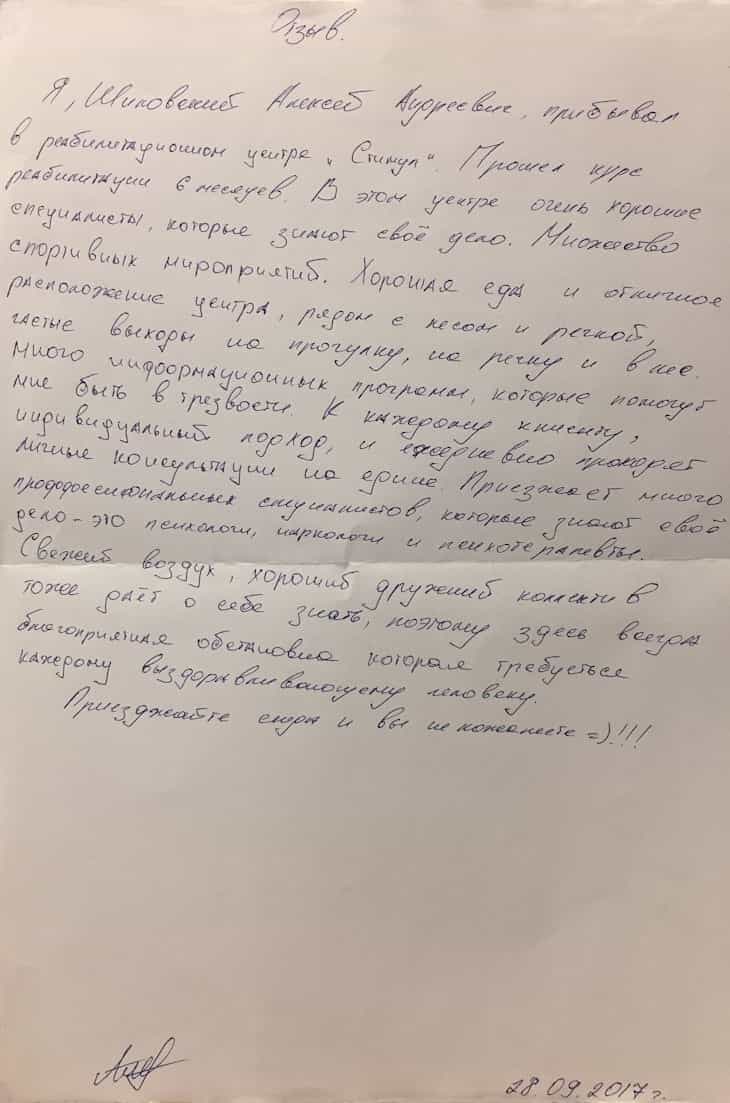 Отзыв.
Я, Шиловский Алексей Андреевич, прибывал
в реабилитационном центре „Стимул“. Прошел курс
реабилитации 6 месяцев. В этом центре очень хорошие
специалисты, которые знают своё дело. Множество
спортивных мироприятий. Хорошая еда и отличное
расположение центра, рядом с лесом и речкой,
частые выходы на прогулку, на речку и в лес.
Много информационных программ, которые помогут
мне быть в трезвости. К каждому клиенту,
индивидуальный подход, и ежедневно проходят
личные консультации на едине. Приезжает много
профдоессиональных специалистов, которые знают своё
дело - это психологи, наркологи и психотерапевты.
Свежий воздух, хороший дружний коллектив
тоже даёт о себе знать, поэтому здесь всегда
благоприятная обстановка которая требуеться
каждому выздоравливающему человеку.
Приезджайте сюда и вы не пожалеете =)!!!
28.09.2017г.